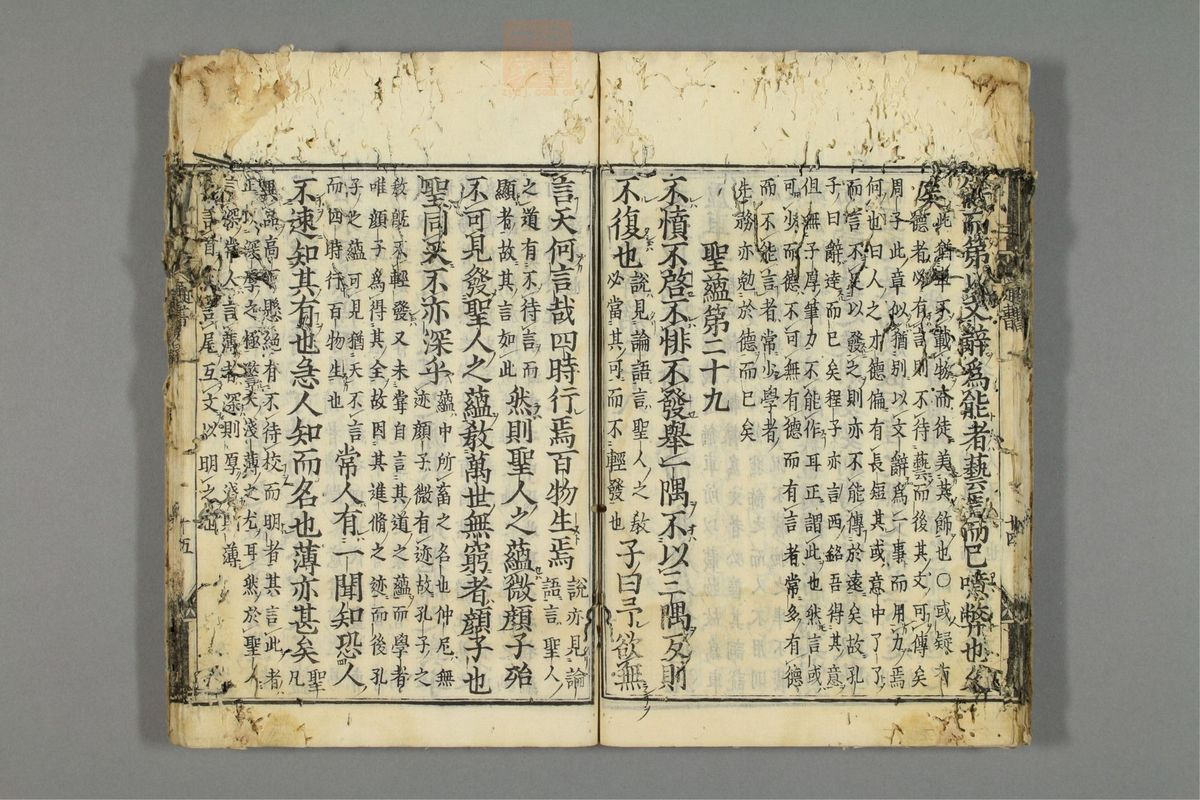 而第以文辭爲能者藝焉而已噫弊也久
矣
此猶車不載物而徒美其飾也○或疑有
德者必有言則不待藝而後其文可傳矣
周子此章似猶別以文辭爲一事而用力焉
何也曰人之才德偏有長短其或意中了了
而言不足以發之則亦不能傳於遠矣故孔
子曰辭達而已矣程子亦言西銘吾得其意
但無子厚筆力不能作耳正謂此也然言或
可少而德不可無有德而有言者常多有德
而不能言者常少學者
先務亦勉於德而已矣
聖蘊第二十九
不憤不啓不悱不發舉一隅不以三隅反則
不復也
說見論語言聖人之敎
必當其可而不輕發也
子曰予欲無
言天何言哉四時行焉百物生焉
說亦見論
語言聖人
之道有不待言而
顯者故其言如此
然則聖人之蘊微顏子殆
不可見發聖人之蘊敎萬世無窮者顏子也
聖同天不亦深乎
蘊中所畜之名也仲尼無
迹顏子微有迹故孔子之
敎旣不輕發又未嘗自言其道之蘊而學者
唯顏子爲得其全故因其進脩之迹而後孔
子之蘊可見猶天不言
而四時行百物生也
常人有一聞知恐人
不速知其有也急人知而名也薄亦甚矣
聖
凡
異品高下懸絕有不待校而明者其言此者
正以深厚之極警夫淺薄之尤耳然於聖人
言深常人言薄者深則厚淺則薄
言首下言尾互文以明之也